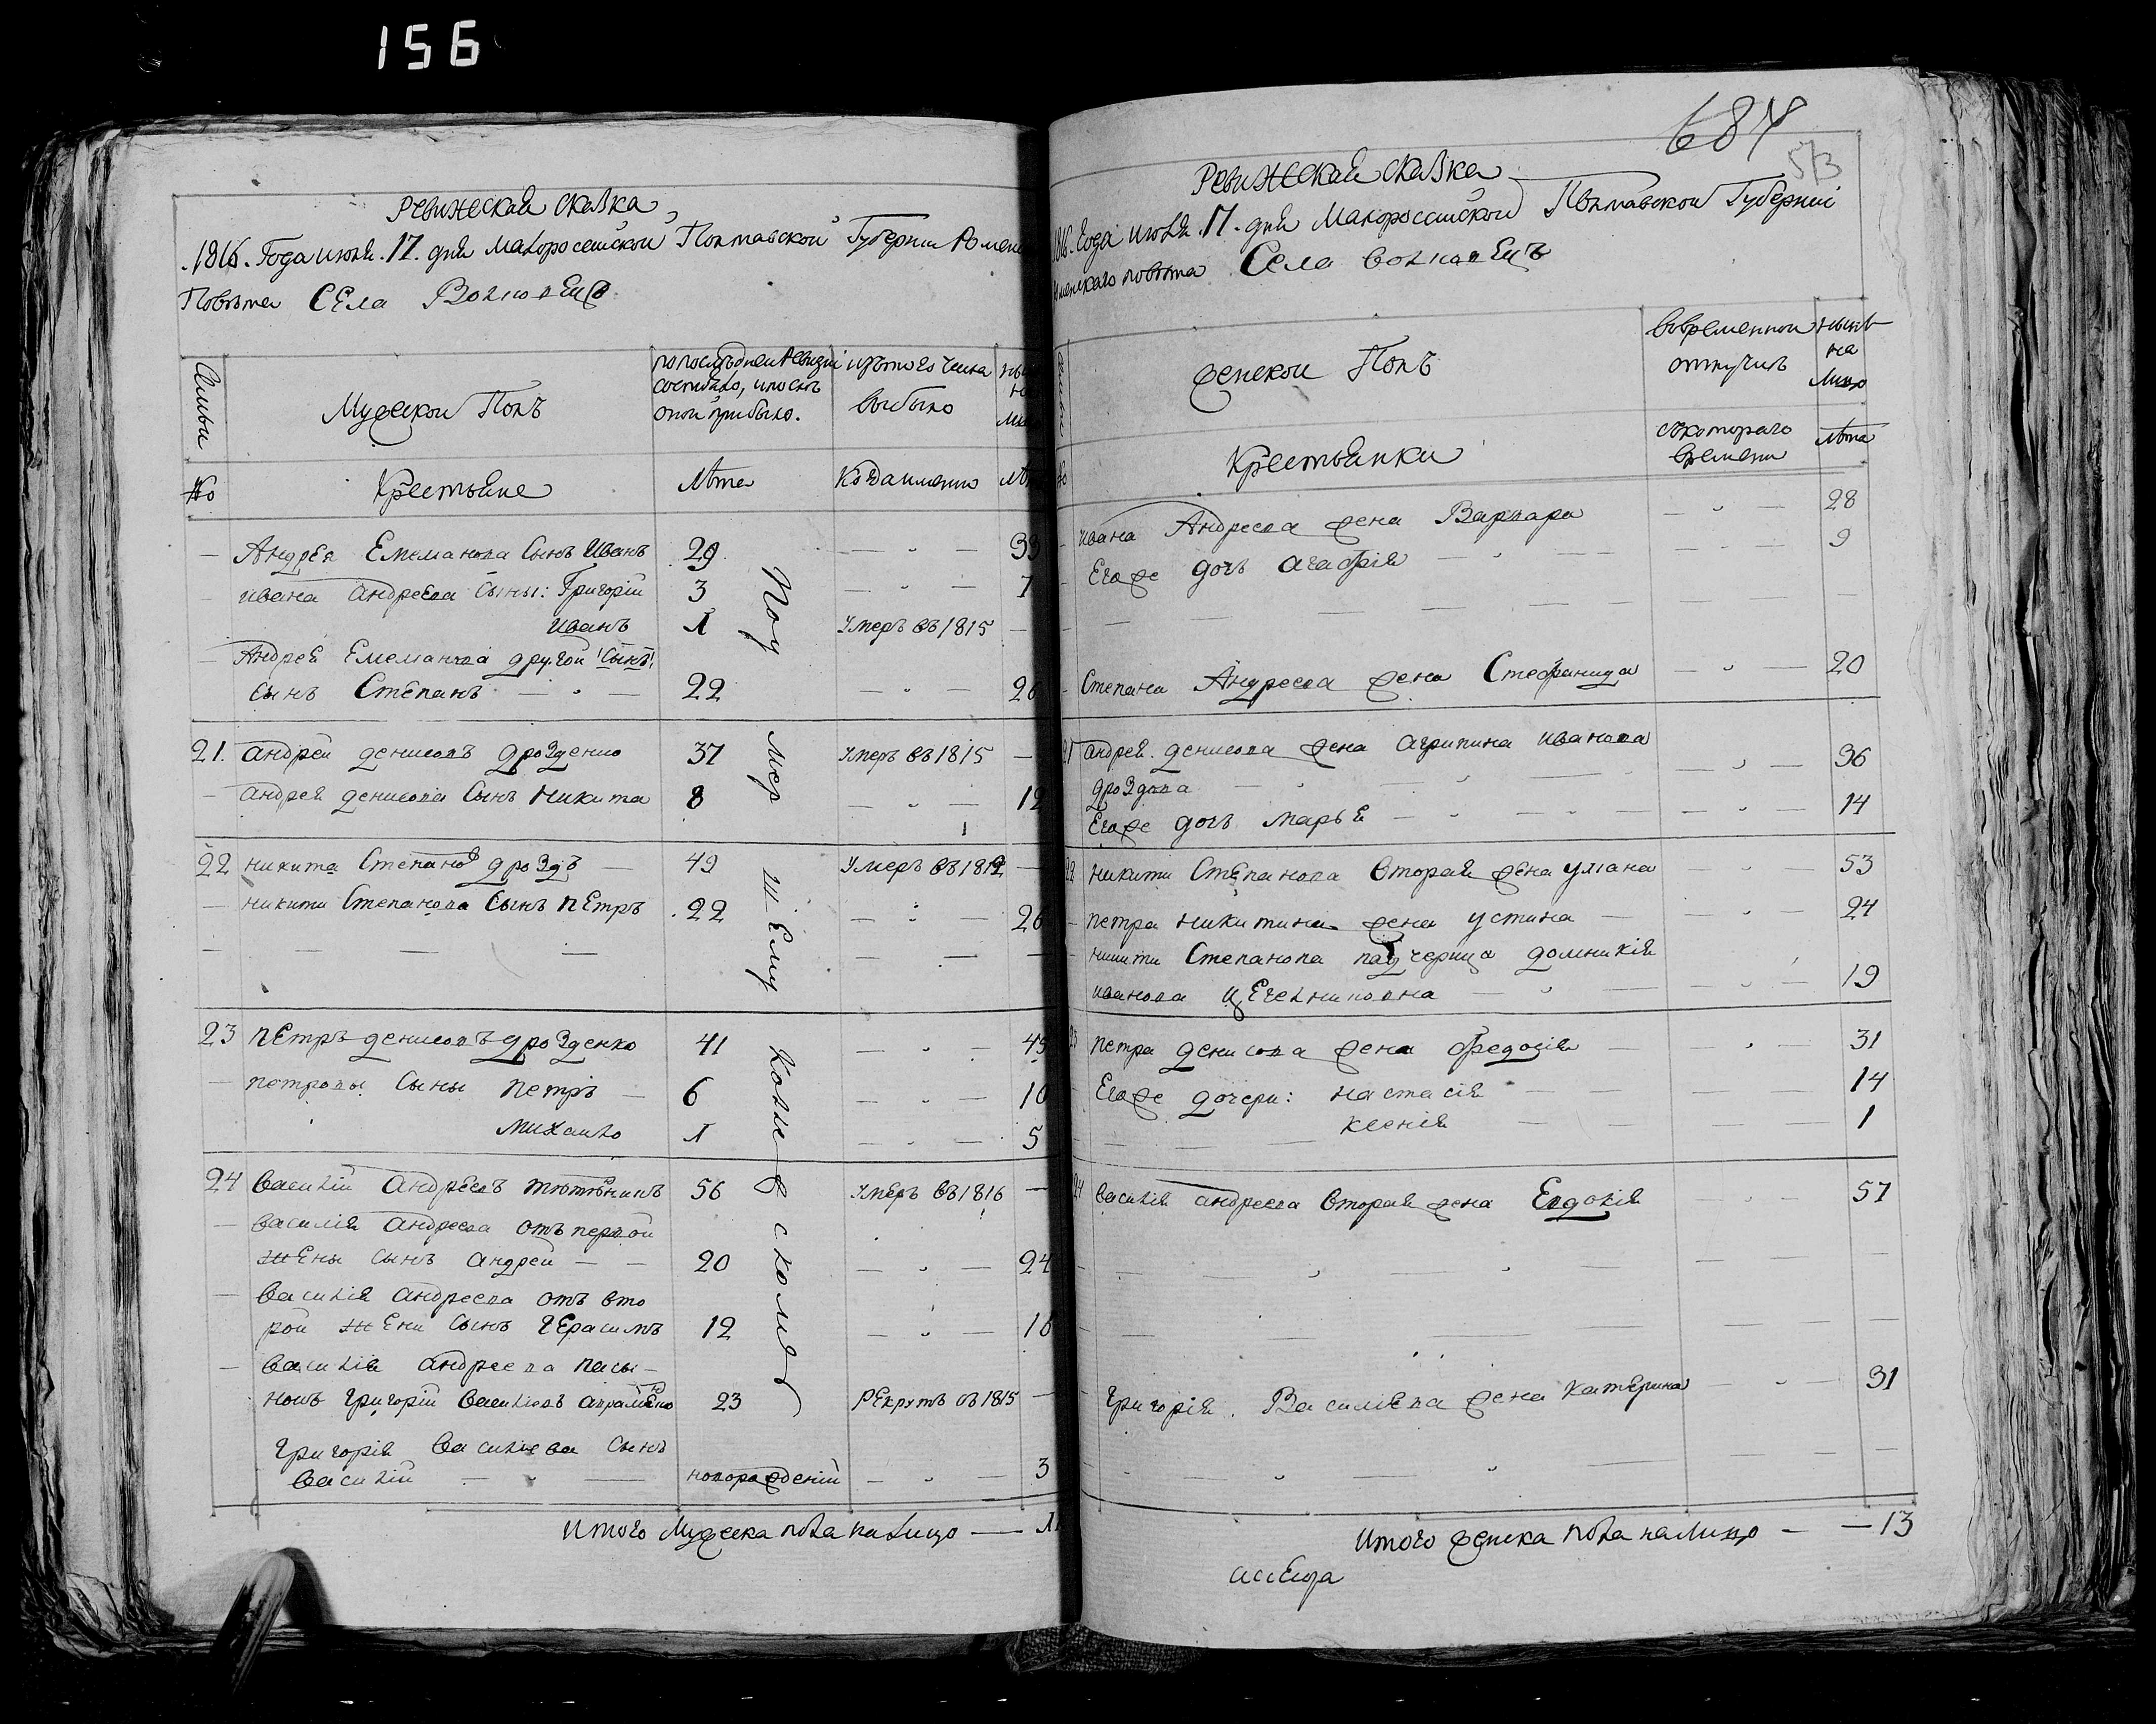 156
Ревижская сказка
1816. Года июля .17. дня Малоросейской Полтавской Губернии Ромен
Повѣта Села
Мужескои Полъ
по последнеи Ревизии
состояло, и после
онои прибыло.
изътого числа
выбыло
№
Крестьяне
Лѣта
Когда именно
Андрея Емелианова Сынъ Иванъ 29 — 33
Ивана Андреева Сыны: Григорій 3 — 7
Иванъ 1 Умеръ въ 1815 —
Андрея Емелианова другои Сынъ
сынъ Степанъ — 22 — 26
21. Андрей денисовъ дрозденко 37 Умеръ въ 1815 —
Андрея денисова Сынъ Никита 8 — 12
22 никита Степановъ дроздъ — 49 Умеръ въ 1812 —
никити Степанова Сынъ Петръ 22 — 26
23 Петръ денисовъ дрозденко 41 — 45
петровы Сыны петръ — 6 — 10
Михайло 1 — 5
24 Василій Андреевъ 56 Умеръ въ 1816 —
Василія Андреева отъ первой
жены сынъ андрей — 20 — 24
Василія андреева отъ вто
рой жени Сынъ Герасимъ 12 — 16
Василія андреева пасы-
нокъ григорій Васильевъ 23 Рекрутъ въ 1815 —
Григорія Василіева Сынъ
Василій — новорожденій — 3
Итого Мужеска пола налицо — 11
684
573
Ревижская сказка
1816. Года июля .17. дня Малороссийской Полтавской Губерніи
менскаго повѣта Села
женскои Полъ
вовременнои
отлучке
ныне
на
лицо
Крестьянки
съкотораго
времени
лѣта
Ивана Андреева жена Варвара — 28
Егоже дочь Агафія — 9
Степана Андреева жена Стефанида — 20
21 андрея денисова жена агрипина Иванова — 36
дроздова
Егоже дочь Марья — 14
22 никити Степанова вторая жена улиана — 53
петра никитина жена устина — 24
никити Степанова падчерица домникія
иванова — 19
23 петра денисова жена федосія — 31
Егоже дочери: настасія — 14
ксенія — 1
24 василія андреева вторая жена Евдокія — 57
григорія. Василіева жена катерина — 31
Итого женска пола налицо — 13